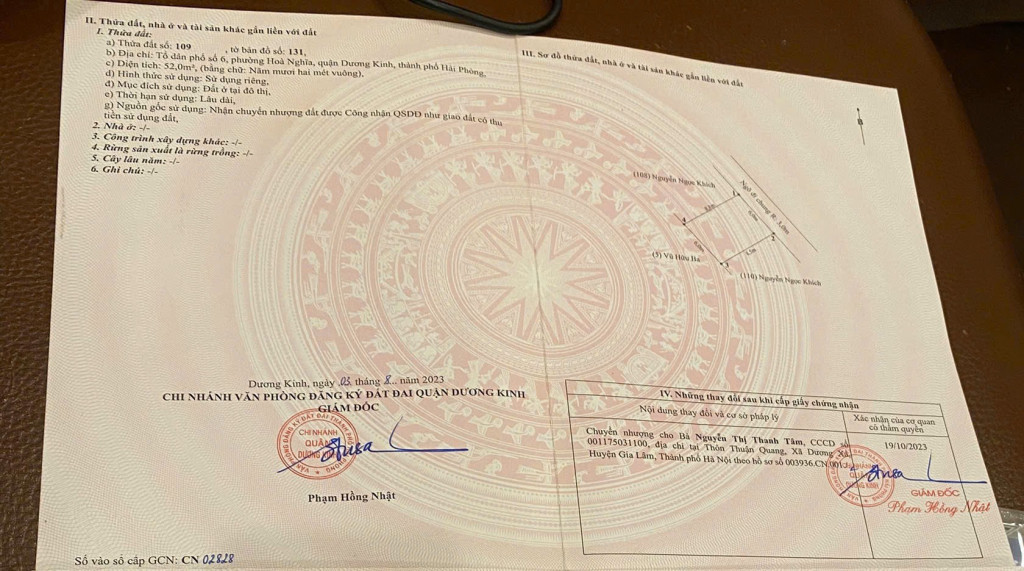 II. Thửa đất, nhà ở và tài sản khác gắn liền với đất
1. Thửa đất:
a) Thửa đất số: 109 , tờ bản đồ số: 131,
b) Địa chỉ: Tổ dân phố số 6, phường Hoà Nghĩa, quận Dương Kinh, thành phố Hải Phòng,
c) Diện tích: 52,0m², (bằng chữ: Năm mươi hai mét vuông),
d) Hình thức sử dụng: Sử dụng riêng,
đ) Mục đích sử dụng: Đất ở tại đô thị,
e) Thời hạn sử dụng: Lâu dài,
g) Nguồn gốc sử dụng: Nhận chuyển nhượng đất được Công nhận QSDĐ như giao đất có thu
tiền sử dụng đất,
2. Nhà ở: -/-
3. Công trình xây dựng khác: -/-
4. Rừng sản xuất là rừng trồng: -/-
5. Cây lâu năm: -/-
6. Ghi chú: -/-
Dương Kinh, ngày 03 tháng 8 năm 2023
CHI NHÁNH VĂN PHÒNG ĐĂNG KÝ ĐẤT ĐAI QUẬN DƯƠNG KINH
GIÁM ĐỐC
CHI NHÁNH
QUẬN
DƯƠNG KINH
Phạm Hồng Nhật
Số vào sổ cấp GCN: CN 02828
III. Sơ đồ thửa đất, nhà ở và tài sản khác gắn liền với đất
B
(108) Nguyễn Ngọc Khích
Ngõ đi chung R: 3,0m
1
4
2
3
(5) Vũ Hữu Ba
(110) Nguyễn Ngọc Khích
IV. Những thay đổi sau khi cấp giấy chứng nhận
Nội dung thay đổi và cơ sở pháp lý
Xác nhận của cơ quan
có thẩm quyền
Chuyển nhượng cho Bà Nguyễn Thị Thanh Tâm, CCCD số
001175031100, địa chỉ tại Thôn Thuận Quang, Xã Dương Xá,
Huyện Gia Lâm, Thành phố Hà Nội theo hồ sơ số 003936.CN.001
19/10/2023
GIÁM ĐỐC
Phạm Hồng Nhật